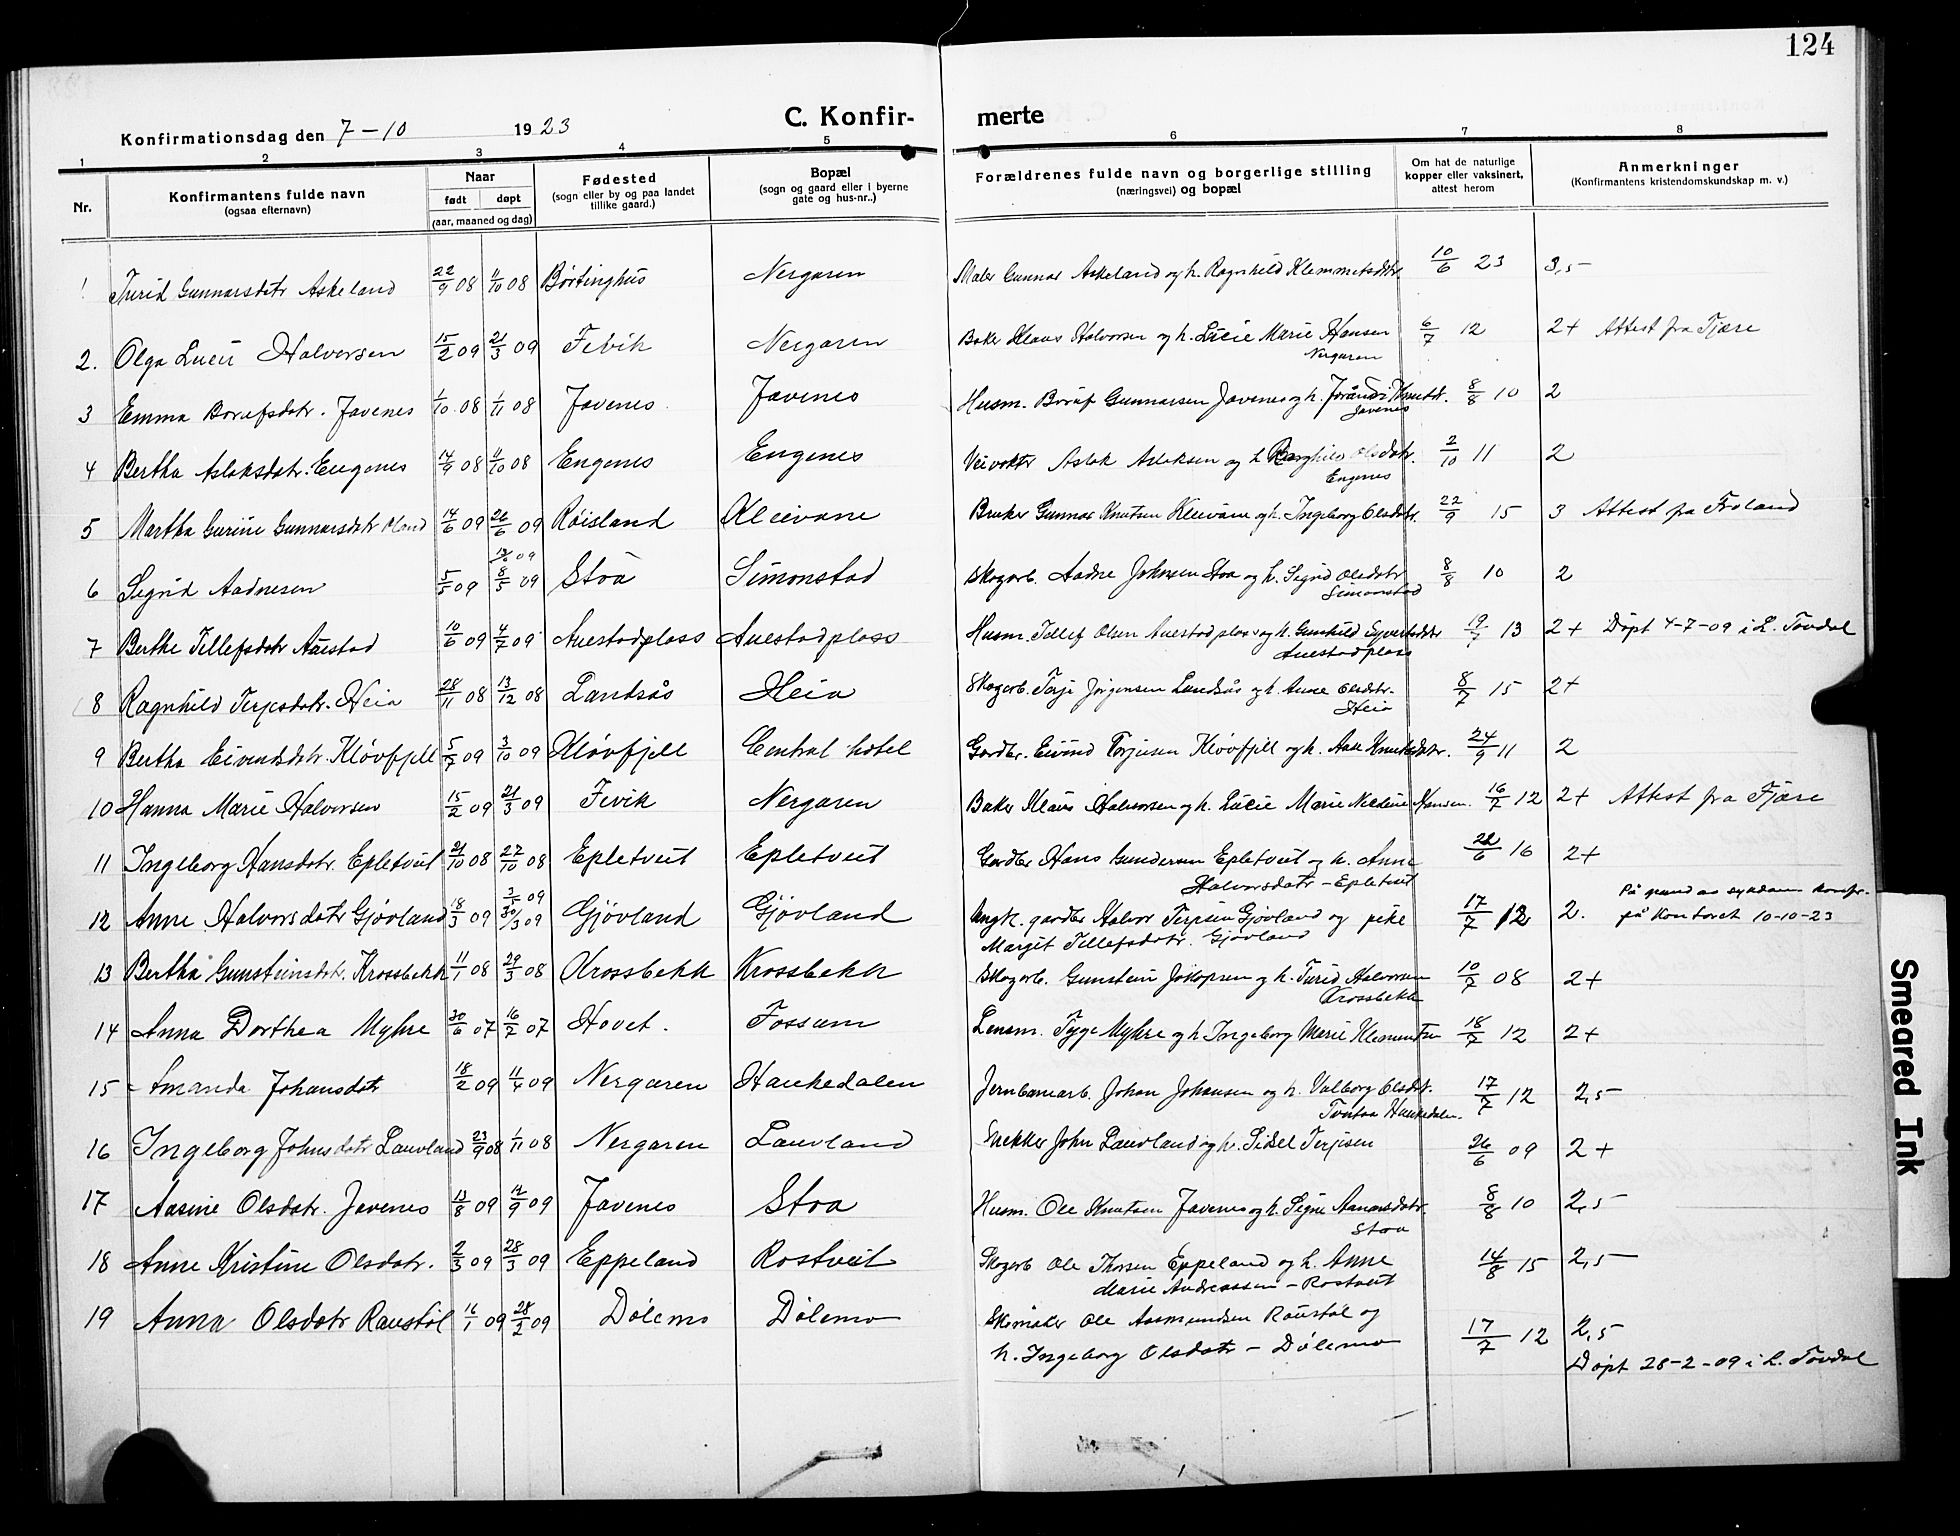 124
Konfirmationsdag den 7-10 1923 C. Konfir- merte
1 2 3 4 5 6 7 8
Nr. Konfirmantens fulde navn (ogsaa efternavn) Naar født døpt (aar, maaned og dag) Fødested (sogn eller by og paa landet tillike gaard.) Bopæl (sogn og gaard eller i byerne gate og hus-nr..) Forældrenes fulde navn og borgerlige stilling (næringsvei) og bopæl Om hat de naturlige kopper eller vaksinert, attest herom Anmerkninger (Konfirmantens kristendomskundskap m. v.)
1 Turid Gunnarsdatr Askeland 22/9 08 11/10 08 Børtinghus Nergaren Maler Gunnar Askeland og h. Ragnhild Klemmetsdtr 10/6 23 3,5
2. Olga Lucie Halvorsen 15/2 09 21/3 09 Fevik Nergaren Baker Klaus Halvorsen og h. Lucie Marie Hansen 6/7 12 2+ Attest fra Fjære
Nergaren
3 Emma Borufsdatr. Javenes 1/10 08 1/11 08 Javenes Javenes Husm. Boruf Gunnarsen Javenes og h. Jorånd Knutsdtr. 8/8 10 2
Javenes
4 Bertha Aslaksdatr. Engenes 14/9 08 11/10 08 Engenes Engenes Veivokter Aslak Aslaksen og h. Olsdatr. 2/10 11 2
Engenes
5 Martha Gurine Gunnarsdatr 14/6 09 26/6 09 Røisland Kleivane Bruker Gunnar Knutsen Kleivane og h. Ingeborg Olsdatr. 22/9 15 3 Attest fra Froland
6 Sigrid Aadnesen 5/5 09 8/5 09 Stoa Simonstad Skogarb. Aadne Johnsen Stoa og h. Sigrid Olsdatr 8/8 10 2
Simonstad
7 Berthe Tellefsdatr Auestad 10/6 09 4/7 09 Auestadplass Auestadplass Husm. Tellef Olsen Auestadplass og h. Gunhild Syvertsdtr 19/7 13 2+ Døpt 4-7-09 i L. Tovdal
Auestadplass
8 Ragnhild Terjesdatr. Heia 28/11 08 13/12 08 Landsås Heia Skogarb. Terje Jørgensen Landsås og h. Anne Olsdtr. 8/7 15 2+
Heia
9 Bertha Eivindsdatr. Kløvfjell 5/7 09 3/10 09 Kløvfjell Central hotel Gardbr. Eivind Torjusen Kløvfjell og h. Aase Knutsdatr. 24/9 11 2
10 Hanna Marie Halvorsen 15/2 09 21/3 09 Fevik Nergaren Baker Klaus Halvorsen og h. Lucie Marie Hansen. 16/7 12 2+ Attest fra Fjære
11 Ingeborg Hansdatr. Epletveit 21/10 08 27/10 08 Epletveit Epletveit Gardbr Hans Gundersen Epletveit og h. Anne 22/6 16 2+
Halvorsdatr - Epletveit
12 Anne Halvorsdatr Gjøvland 18/3 09 30/3 09 Gjøvland Gjøvland Ungk. gardbr Halvor Terjesen Gjøvland og pike 17/7 12 2. På grund av sykdom konfr.
Margit Tellefsdatr. Gjøvland på kontoret 10-10-23
13 Bertha Gunsteinsdatr. Krossbekk 11/1 08 29/3 08 Krossbekk Krossbekk Skogarb. Gunstein Jakopsen og h. Turid Halvorsen 10/7 08 2+
Krossbekk
14 Anna Dorthea Myhre 30/6 07 16/7 07 Hovet. Fossum Lensm. Tyge Myhre og h. Ingeborg Marie Klemmetsen 18/7 12 2+
15 Amanda Johansdatr 18/2 09 11/4 09 Nergaren Haukedalen Jernbanearb. Johan Johansen og h. Valborg Olsdtr. 17/7 12 2,5
Haukedalen.
16 Ingeborg Johnsdatr Lauvland 23/9 08 1/11 08 Nergaren Lauvland Snekker John Lauvland og h. Sidsel Terjesen 26/6 09 2+
17 Aasine Olsdatr. Javenes 13/8 09 12/9 09 Javenes Stoa Husm. Ole Knutsen Javenes og h. Signe Aanonsdatr. 8/8 10 2,5
Stoa
18 Anne Kristine Olsdatr. 2/3 09 28/3 09 Eppeland Rostveit Skogarb Ole Thorsen Eppeland og h. Anne 14/8 15 2,5
Marie Andreassen - Rostveit
19 Anna Olsdatr Raustøl 16/1 09 28/2 09 Dølemo Dølemo Skomaker Ole Aasmundsen Raustøl og 17/7 12 2,5
h. Ingeborg Olsdatr - Dølemo Døpt 28-2-09 i L. Tovdal
Smeared Ink